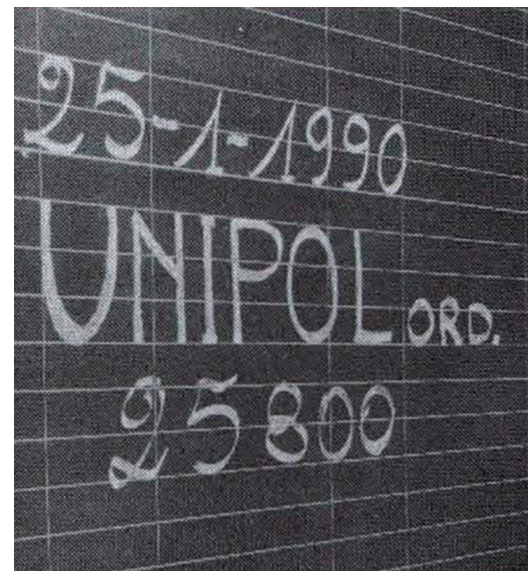 25-1-1990
UNIPOL ORD.
25800